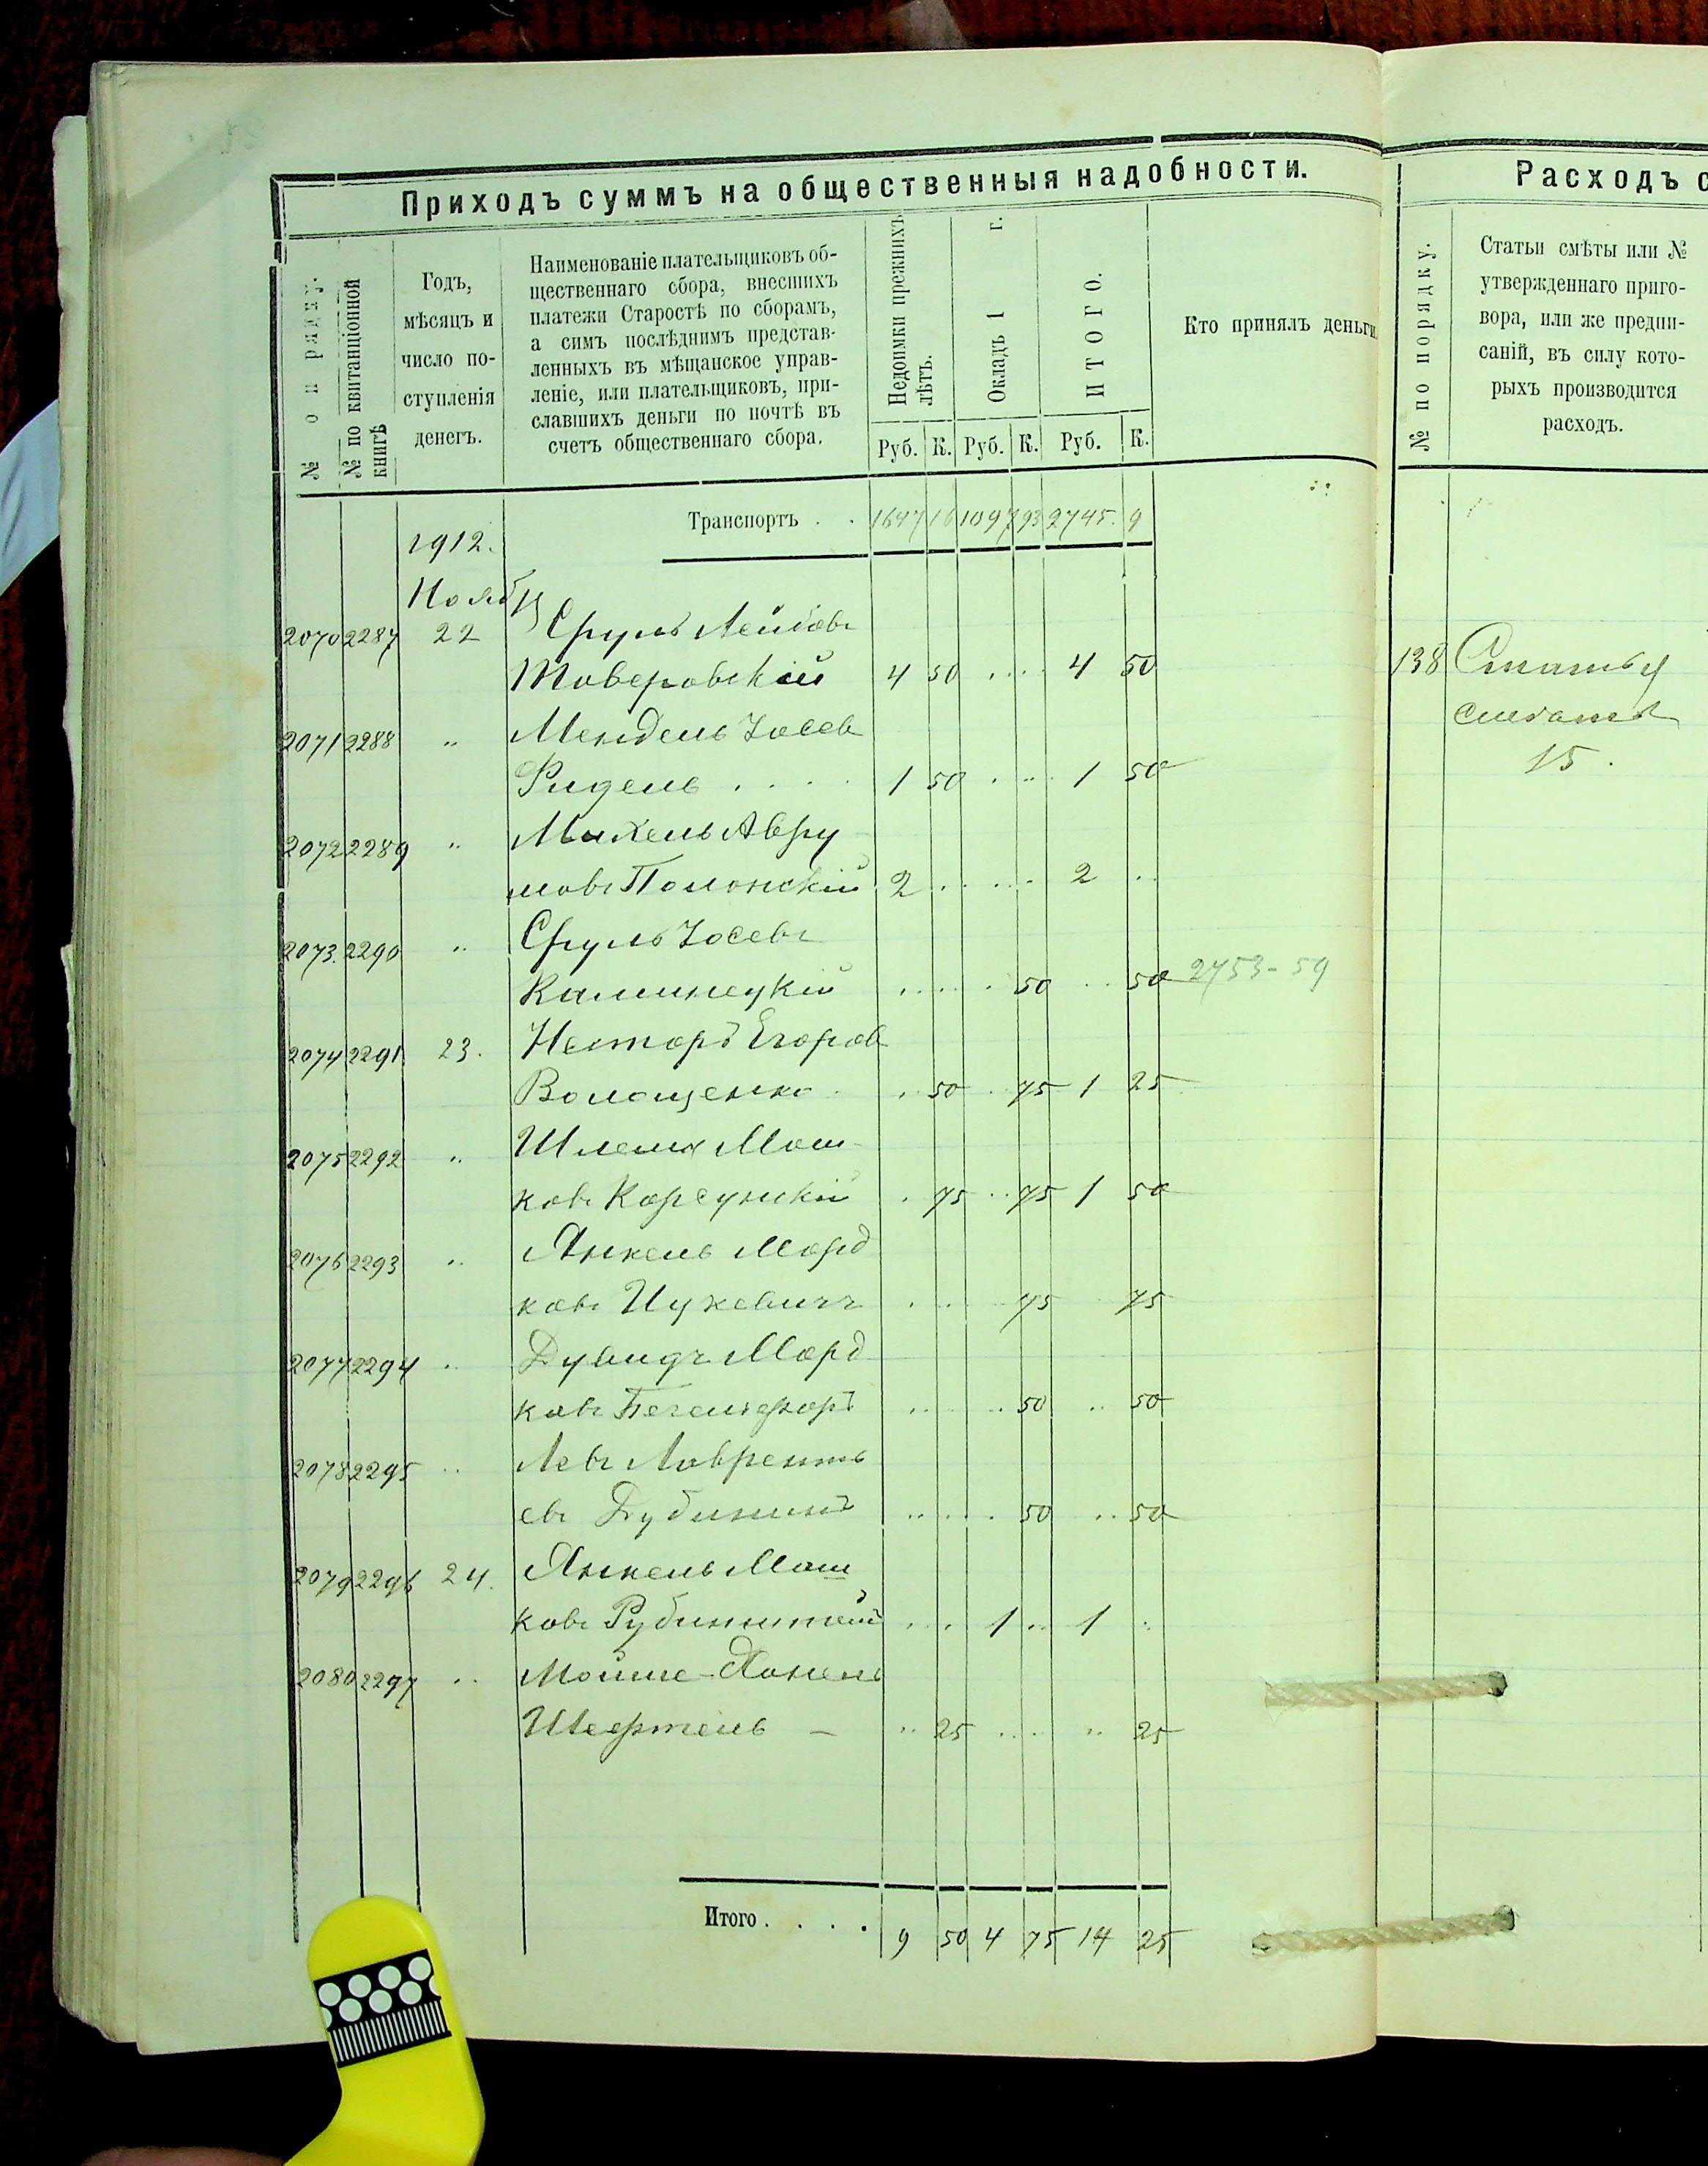 Приходъ суммъ на общественныя надобности.
№ по порядку.
№ по квитанціонной
книгѣ
Годъ,
мѣсяцъ и
число по-
ступленія
денегъ.
Наименованіе плательщиковъ об-
щественнаго сбора, внесшихъ
платежи Старостѣ по сборамъ,
а симъ послѣднимъ представ-
ленныхъ въ мѣщанское управ-
леніе, или плательщиковъ, при-
славшихъ деньги по почтѣ въ
счетъ общественнаго сбора.
Недоимки прежнихъ
лѣтъ.
Окладъ 1 г.
ИТОГО.
Руб. К. Руб. К. Руб. К.
Кто принялъ деньги
Транспортъ . . 1647 16 1097 93 2745. 9
1912.
Ноябр
2070 2287 22 Сруль Лейбовъ
Таверовскій 4 50 .... 4 50
2071 2288 " Мендель Іосев
Ридель .... 1 50 .... 1 50
2072 2289 " Михель Авру
мовъ Полонскій 2 .... 2 ..
2073. 2290 " Сруль Іосевъ
Калинецкій .... 50 .. 50 2753-59
2074 2291 23. Несторъ Егоров
Волощенко .. 50 .. 75 1 25
2075 2292 " Шлема Мош
ковъ Корсунскій . 75 .. 75 1 50
2076 2293 " Янкель Морд
ковъ Цукевичъ .... 75 75
2077 2294 " Дувидъ Морд
ковъ .... 50 .. 50
2078 2295 " Левъ Лаврентъ
евъ Дубининъ .... 50 .. 50
2079 2296 24. Янкель Мош
ковъ Рубинштей .... 1 .. 1 ..
2080 2297 " Мойше-Хонель
Шефтель – " 25 .... " 25
Итого . . . . 9 50 4 75 14 25
Расходъ с
№ по порядку.
Статьи смѣты или №
утвержденнаго приго-
вора, или же предпи-
саній, въ силу кото-
рыхъ производится
расходъ.
138 Статья
сметы
15.